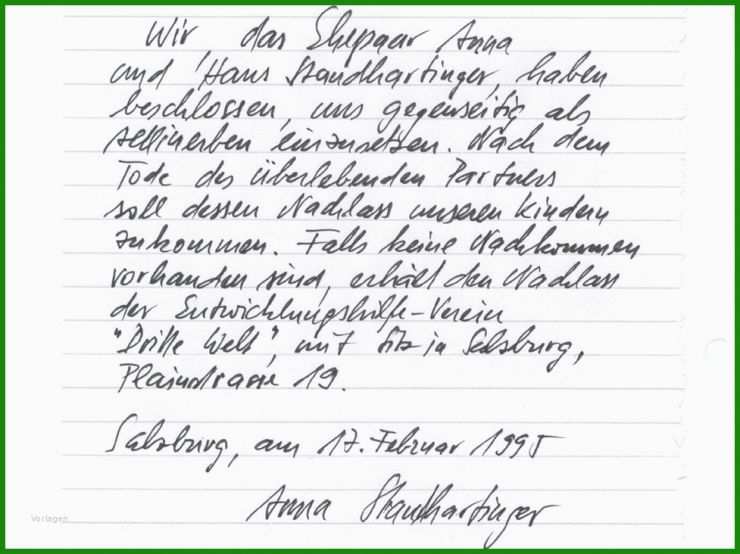 Wir, das Ehepaar Anna
und Hans Standhartinger, haben
beschlossen, uns gegenseitig als
Alleinerben einzusetzen. Nach dem
Tode des überlebenden Partners
soll dessen Nachlass unseren Kindern
zukommen. Falls keine Nachkommen
vorhanden sind, erhält den Nachlass
der Entwicklungshilfe-Verein
"Dritte Welt", mit Sitz in Salzburg,
Plainstrasse 19.
Salzburg, am 17. Februar 1995
Anna Standhartinger
Vorlagen